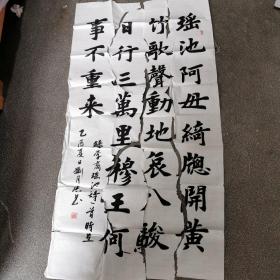 瑶池阿母綺牕開黄
竹歌聲動地哀八駿
日行三萬里穆王何
事不重来
録李商隐瑶池詩一首時在
乙酉夏日